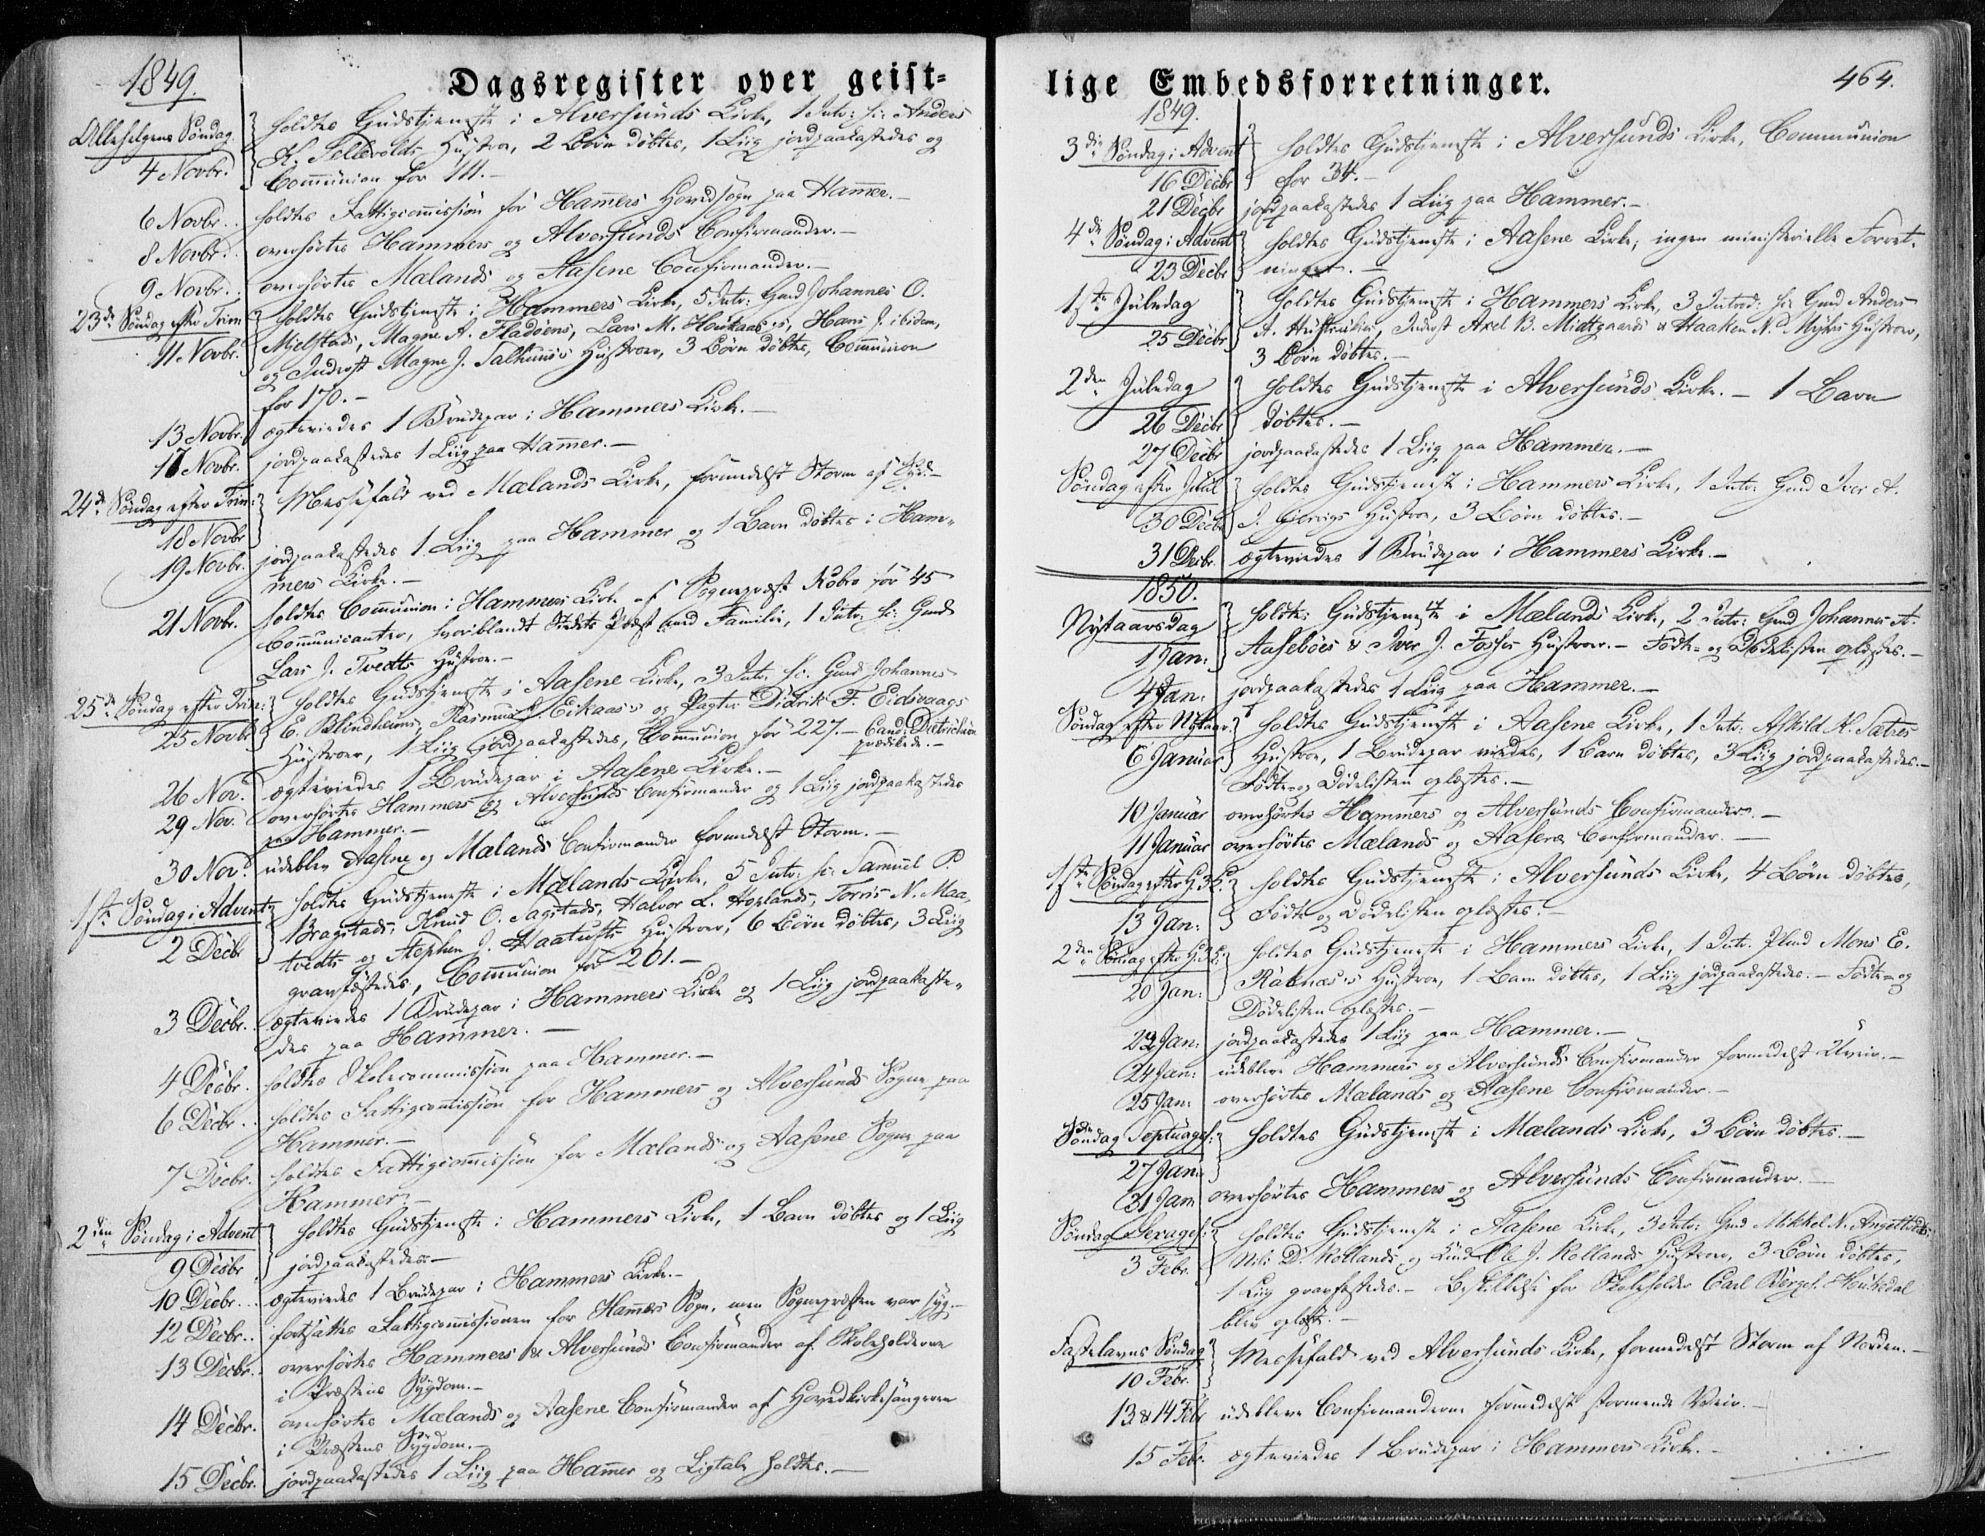 1849.
Dagsregister over geist-
Allehelgens Søndag
4 Novbr.
holdtes Gudstjeneste i Alversunds Kirke, 1 Intr: f: Anders
K. Tellevolds Hustroe, 2 Børn døbtes, 1 Liig jordpaakastedes og
Communion for 111.-
6 Novbr. holdtes Fattigcommission for Hammers Hovedsogn paa Hammer.-
8 Novbr. overhørtes Hammers og Alversunds Confirmander.-
9 Novbr. overhørtes Mælands og Aasene Confirmander.-
23de Søndag efter Trin:
11 Novbr.
holdtes Gudstjeneste i Hammers Kirke, 5 Intr: Gmd Johannes O.
Mjelstads, Magne A. Fladøens, Lars M. Houkaas's, Hans J. ibidem,
og Inderst Magne J. Salhuus's Hustroer, 3 Børn døbtes, Communion
for 170.-
13 Novbr. ægteviedes 1 Brudepar i Hammers Kirke.-
17 Novbr. jordpaakastedes 1 Liig paa Hammer.-
24de Søndag efter Trin:
18 Novbr
Messefald ved Mælands Kirke, formedelst Storm af Syd.-
19 Novbr. jordpaakastedes 1 Liig paa Hammer og 1 Barn døbtes i Ham-
mers Kirke.-
21 Novbr. holdtes Communion i Hammers Kirke af Sognepræst Robro for 45
Communicanter, hvoriblandt Stedets Præst med Familie, 1 Intr: f: Gmds
Lars J. Tvedts Hustroe.-
25de Søndag efter Trin:
25 Novbr
holdtes Gudstjeneste i Aasene Kirke, 3 Intr: f: Gmd Johannes
E. Blindheims, Rasmus J. Eikaas's og Pagter Didrik F. Eidsvaags
Hustroer, 1 Liig jordpaakastedes, Communion for 227.- Cand: Dietrichson
prædikede.-
26 Nov. ægteviedes 1 Brudepar i Aasene Kirke.-
29 Nov. overhørtes Hammers og Alversunds Confirmander og 1 Liig jordpaakastedes
paa Hammer.-
30 Nov. udeblev Aasene og Mælands Confirmander formedelst Storm.-
1ste Søndag i Advent
2 Decbr
holdtes Gudstjeneste i Mælands Kirke, 5 Intr: f: Samuel P.
Bragstads, Knud O. Sagstads, Halvor L. Hoplands, Torris N. Maa-
tvedts og Stephen J. Haatufts Hustroer, 6 Børn døbtes, 3 Liig
gravfæstedes, Communion for 201.-
3 Decbr. ægteviedes 1 Brudepar i Hammers Kirke og 1 Liig jordpaakaste-
des paa Hammer.-
4 Decbr. holdtes Skolecommission paa Hammer.-
6 Decbr. holdtes Fattigcommission for Hammers og Alversunds Sogne paa
Hammer.-
7 Decbr. holdtes Fattigcommission for Mælands og Aasene Sogne paa
Hammer.-
2den Søndag i Advent
9 Decbr
holdtes Gudstjeneste i Hammers Kirke, 1 Barn døbtes og 1 Liig
jordpaakastedes.-
10 Decbr. ægteviedes 1 Brudepar i Hammers Kirke.-
12 Decbr. fortsattes Fattigcommissionen for Hammers Sogn, men Sognepræsten var syg.-
13 Decbr. overhørtes Hammers & Alversunds Confirmander af Skoleholderne
i Præstens Sygdom.-
14 Decbr. overhørtes Mælands og Aasene Confirmander af Hovedkirkesangeren
i Præstens Sygdom.-
15 Decbr. jordpaakastedes 1 Liig paa Hammer og Ligtale holdtes.-
lige Embedsforretninger.
464.
1849.
3die Søndag i Advent
16 Decbr
holdtes Gudstjeneste i Alversunds Kirke, Communion
for 34.-
21 Decbr jordpaakastedes 1 Liig paa Hammer.-
4de Søndag i Advent
23 Decbr
holdtes Gudstjeneste i Aasene Kirke, ingen ministerielle Forret-
ninger.-
1ste Juledag
25 Decbr
holdtes Gudstjeneste i Hammers Kirke, 3 Introd: f: Gmd Anders
J. Husebøes, Inderst Axel B. Midtgaards & Haaken N. Mykes Hustroer,
3 Børn døbtes.-
2den Juledag
26 Decbr
holdtes Gudstjeneste i Alversunds Kirke.- 1 Barn
døbtes.-
27 Decbr jordpaakastedes 1 Liig paa Hammer.-
Søndag efter Juul
30 Decbr
holdtes Gudstjeneste i Hammers Kirke, 1 Intr: Gmd Iver A.
J. Gjervigs Hustroe, 3 Børn døbtes.-
31 Decbr. ægteviedes 1 Brudepar i Hammers Kirke.-
1850.
Nytaarsdag
1 Jan:
holdtes Gudstjeneste i Mælands Kirke, 2 Intr: Gmd Johannes A.
Aasebøes & Iver J. Fosses Hustroer.- Føde- og Dødelisten oplæstes.-
4 Jan: jordpaakastedes 1 Liig paa Hammer.-
Søndag efter Nytaar
6 Januar
holdtes Gudstjeneste i Aasene Kirke, 1 Intr: Askild K. Sætres
Hustroe, 1 Brudepar viedes, 1 Barn døbtes, 3 Liig jordpaakastedes.-
Føde- og Dødelisten oplæstes.-
10 Januar overhørtes Hammers og Alversunds Confirmander.-
11 Januar overhørtes Mælands og Aasene Confirmander.-
1ste Søndag efter H.3K.
13 Jan:
holdtes Gudstjeneste i Alversunds Kirke, 4 Børn døbtes,
Føde og Dødelisten oplæstes.-
2den Søndag efter H.3K:
20 Jan:
holdtes Gudstjeneste i Hammers Kirke, 1 Intr. Gmd Mons E.
Røknæs's Hustroe, 1 Barn døbtes, 1 Liig jordpaakastedes.- Føde- og
Dødelisten oplæstes.-
22 Jan: jordpaakastedes 1 Liig paa Hammer.-
24 Jan: udebleve Hammers og Alversunds Confirmander formedelst Uveir.-
25 Jan: overhørtes Mælands og Aasene Confirmander.-
Søndag Septuages:
27 Jan:
holdtes Gudstjeneste i Mælands Kirke, 3 Børn døbtes.-
31 Jan overhørtes Hammers og Alversunds Confirmander.-
Søndag Sexages:
3 Febr.
holdtes Gudstjeneste i Aasene Kirke, 3 Intr: Gmd Mikkel N.
Nils D. Rollands og Ole J. Rollands Hustroer, 3 Børn døbtes,
1 Liig gravfæstedes.- Bestillelse for Skoleholder Carl
blev oplæst.-
Fastelavns Søndag
10 Febr.
Messefald ved Alversunds Kirke, formedelst Storm af Norden.-
13 & 14 Febr udebleve Confirmanderne formedelst stormende Veir.-
15 Febr. ægteviedes 1 Brudepar i Hammers Kirke.-